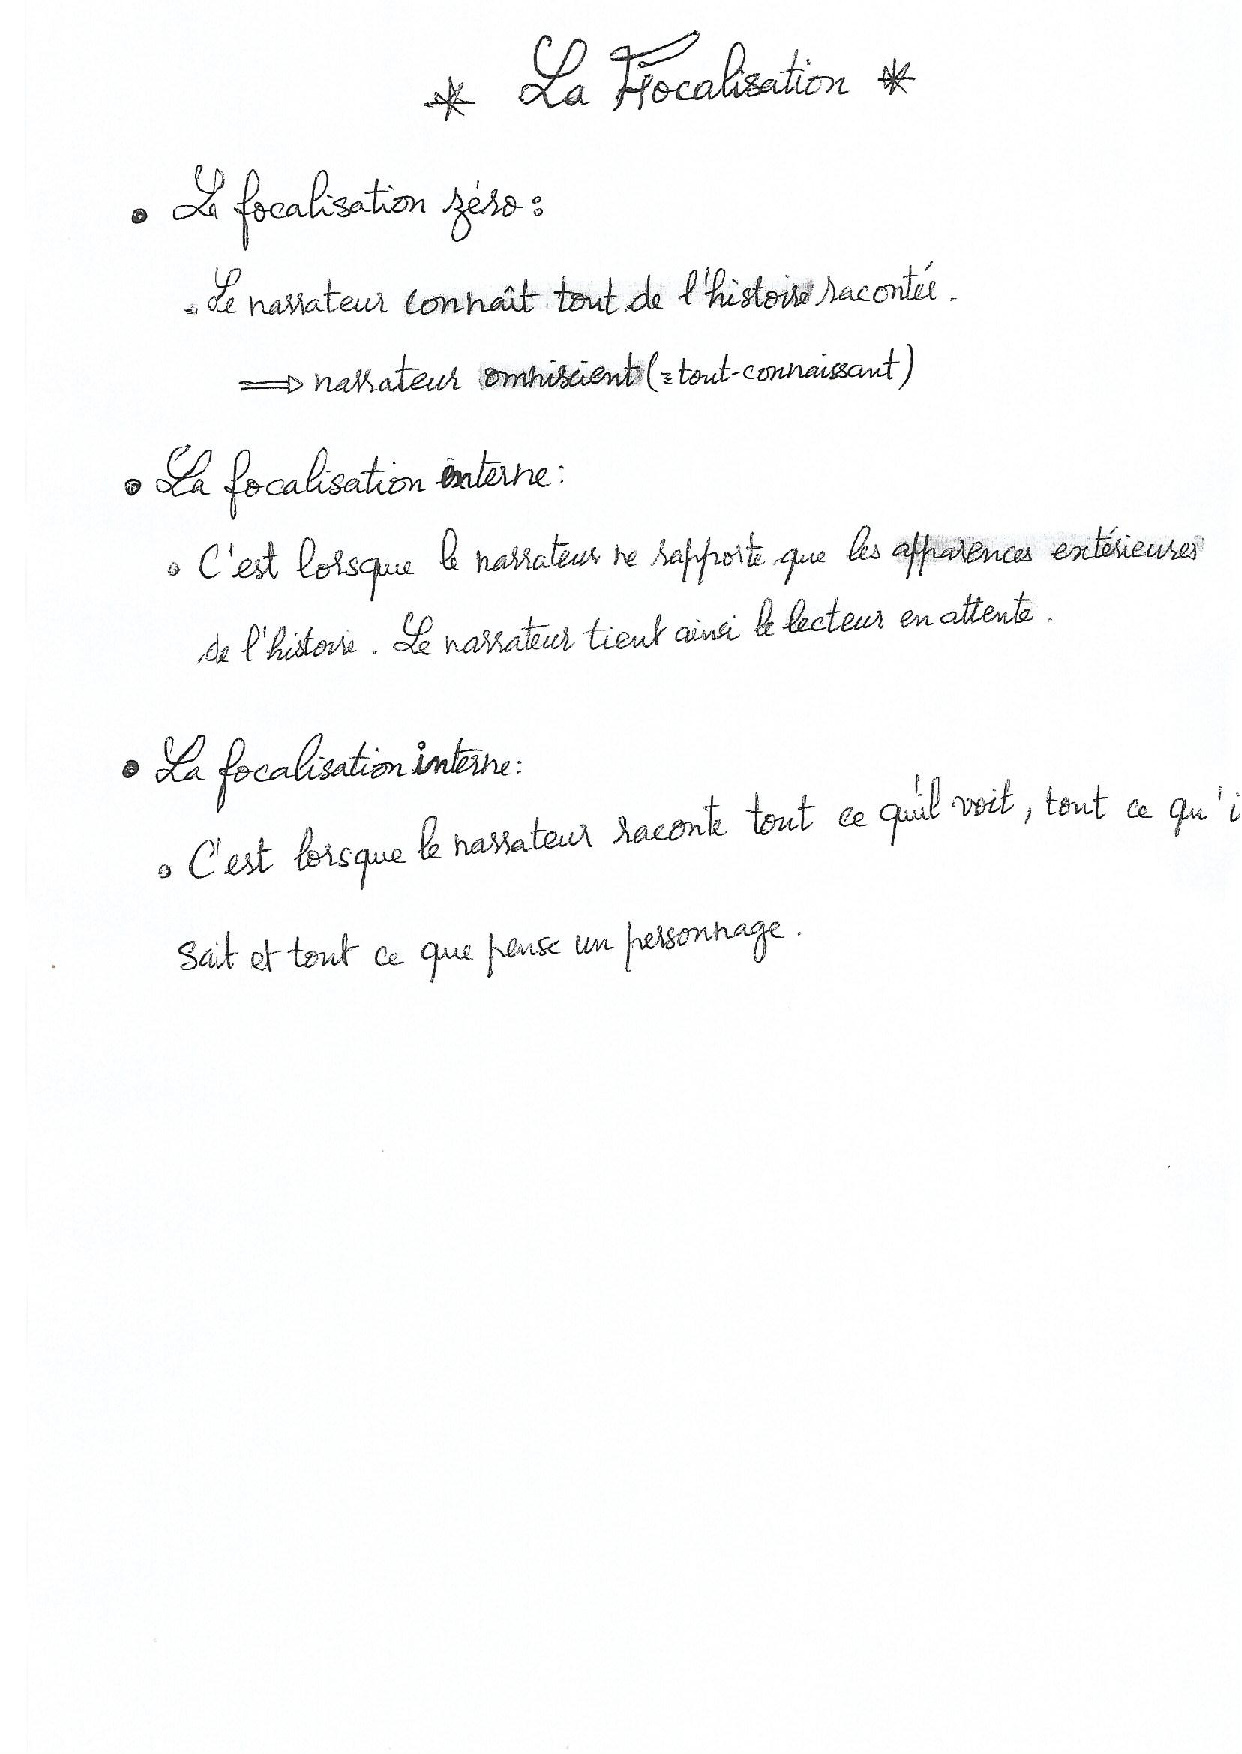 * La Focalisation *
• La focalisation zéro :
. Le narrateur connaît tout de l'histoire racontée .
⇒ narrateur omniscient (= tout-connaissant)
• La focalisation enterne :
• C'est lorsque le narrateur ne rapporte que les apparences extérieures
de l'histoire . Le narrateur tient ainsi le lecteur en attente .
• La focalisation interne :
• C'est lorsque le narrateur raconte tout ce qu'il voit , tout ce qu'i
sait et tout ce que pense un personnage .